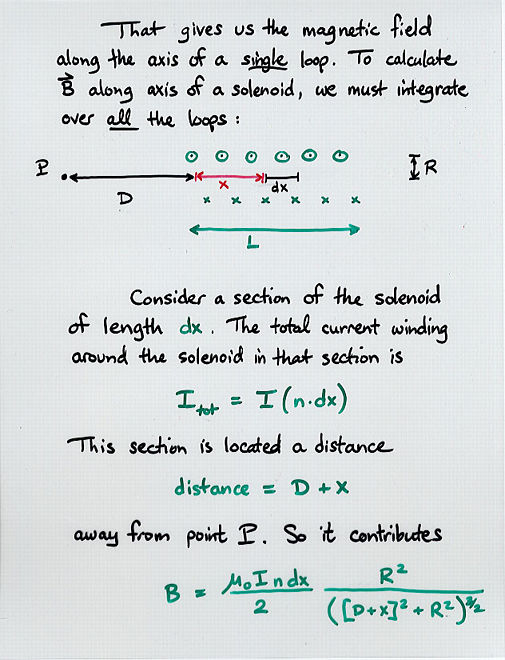 That gives us the magnetic field
along the axis of a single loop. To calculate
B⃗ along axis of a solenoid, we must integrate
over all the loops :
P
R
x
dx
D
L
Consider a section of the solenoid
of length dx. The total current winding
around the solenoid in that section is
I_tot = I (n·dx)
This section is located a distance
distance = D + x
away from point P. So it contributes
B = μ₀ I n dx / 2  R² / ([D+x]² + R²)^3/2